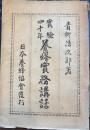 青柳浩次郎著
實驗
四十年
養蜂實務講話
日本養蜂協會發行